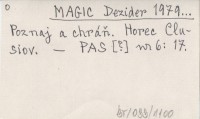 0
MAGIC Dezider 1979...
Poznaj a chráň. Horec Clu-
siov. – PAS [?] nr 6: 17.